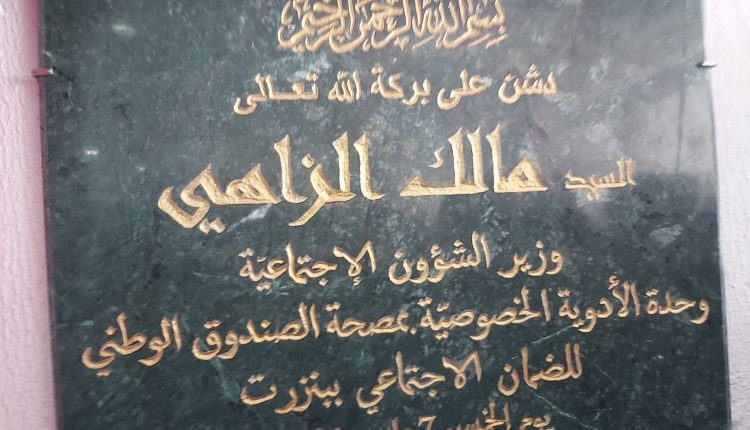 بسم الله الرحمن الرحيم
دشن على بركة الله تعالى
السيد مالك الزاهي
وزير الشؤون الإجتماعيّة
وحدة الأدوية الخصوصيّة بمصحة الصندوق الوطني
للضمان الاجتماعي ببنزرت
يوم الخميس 7